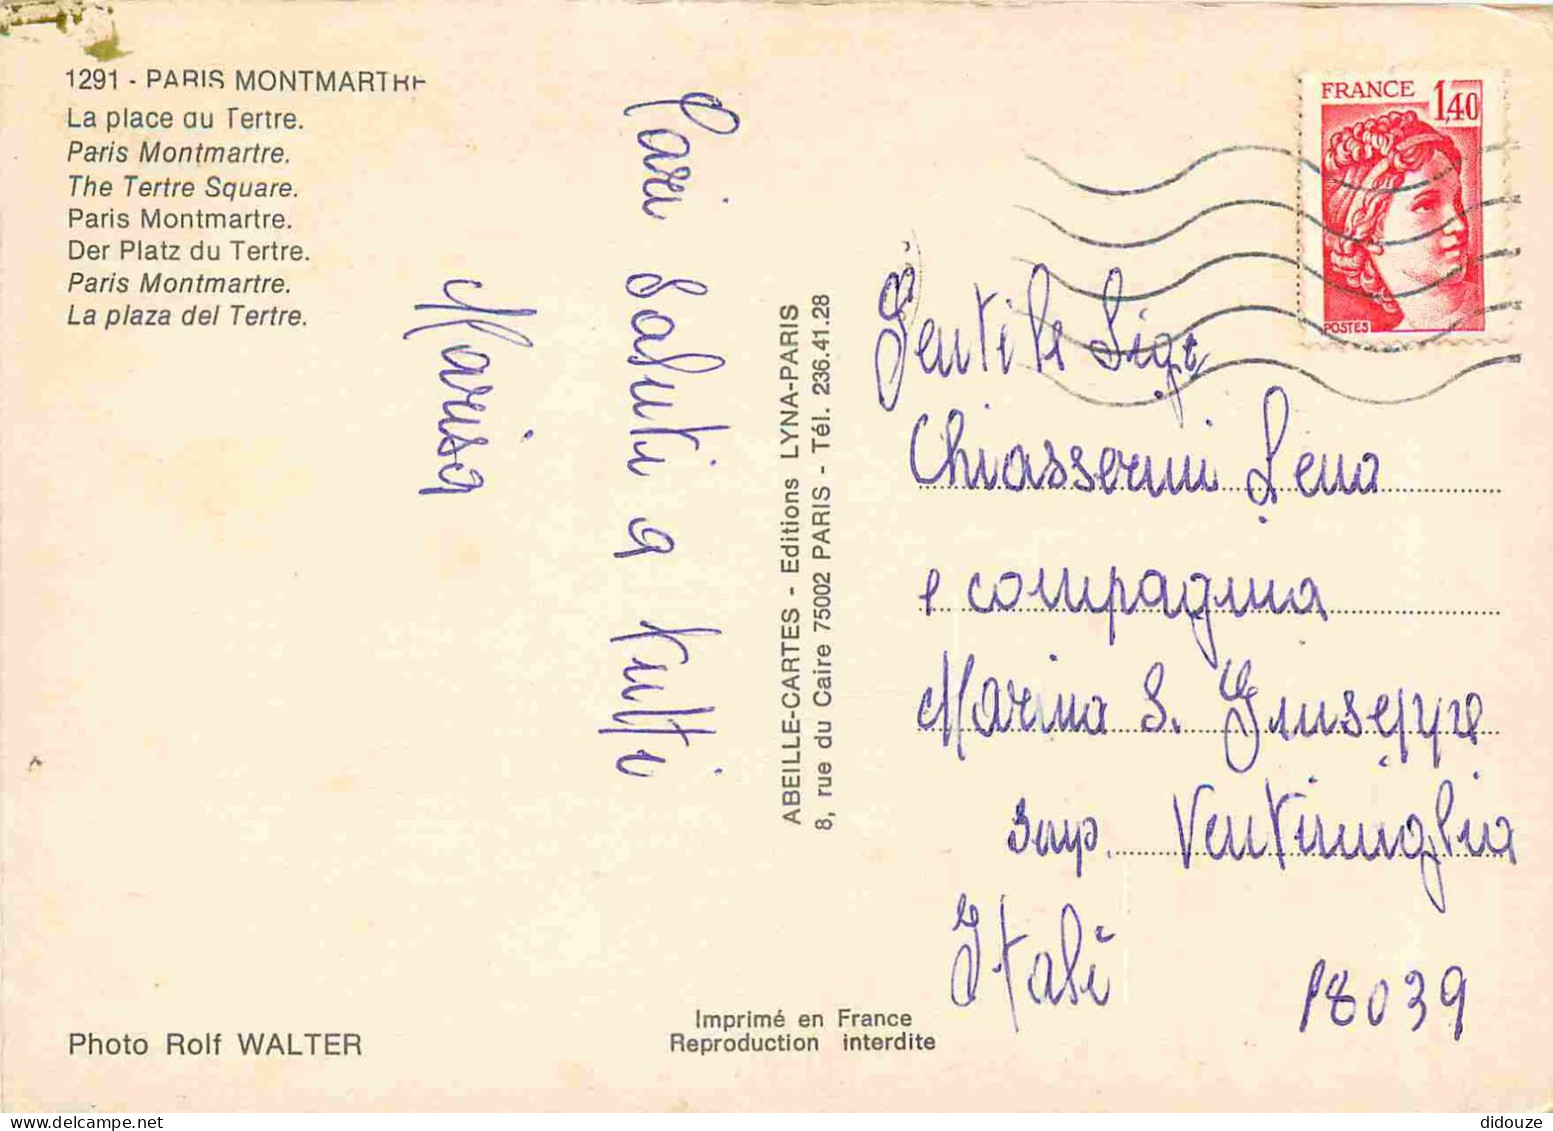 1291 - PARIS MONTMARTRE
La place du Tertre.
Paris Montmartre.
The Tertre Square.
Paris Montmartre.
Der Platz du Tertre.
Paris Montmartre.
La plaza del Tertre.
Cari Saluti a tutti
Marisa
ABEILLE-CARTES - Editions LYNA-PARIS
8, rue du Caire 75002 PARIS - Tél. 236.41.28
FRANCE 1,40
POSTES
Gentile Sig.
Chiasserini Lena
e compagnia
Marina S. Giuseppe
Ventimiglia
Itali
18039
Photo Rolf WALTER
Imprimé en France
Reproduction interdite
didouze